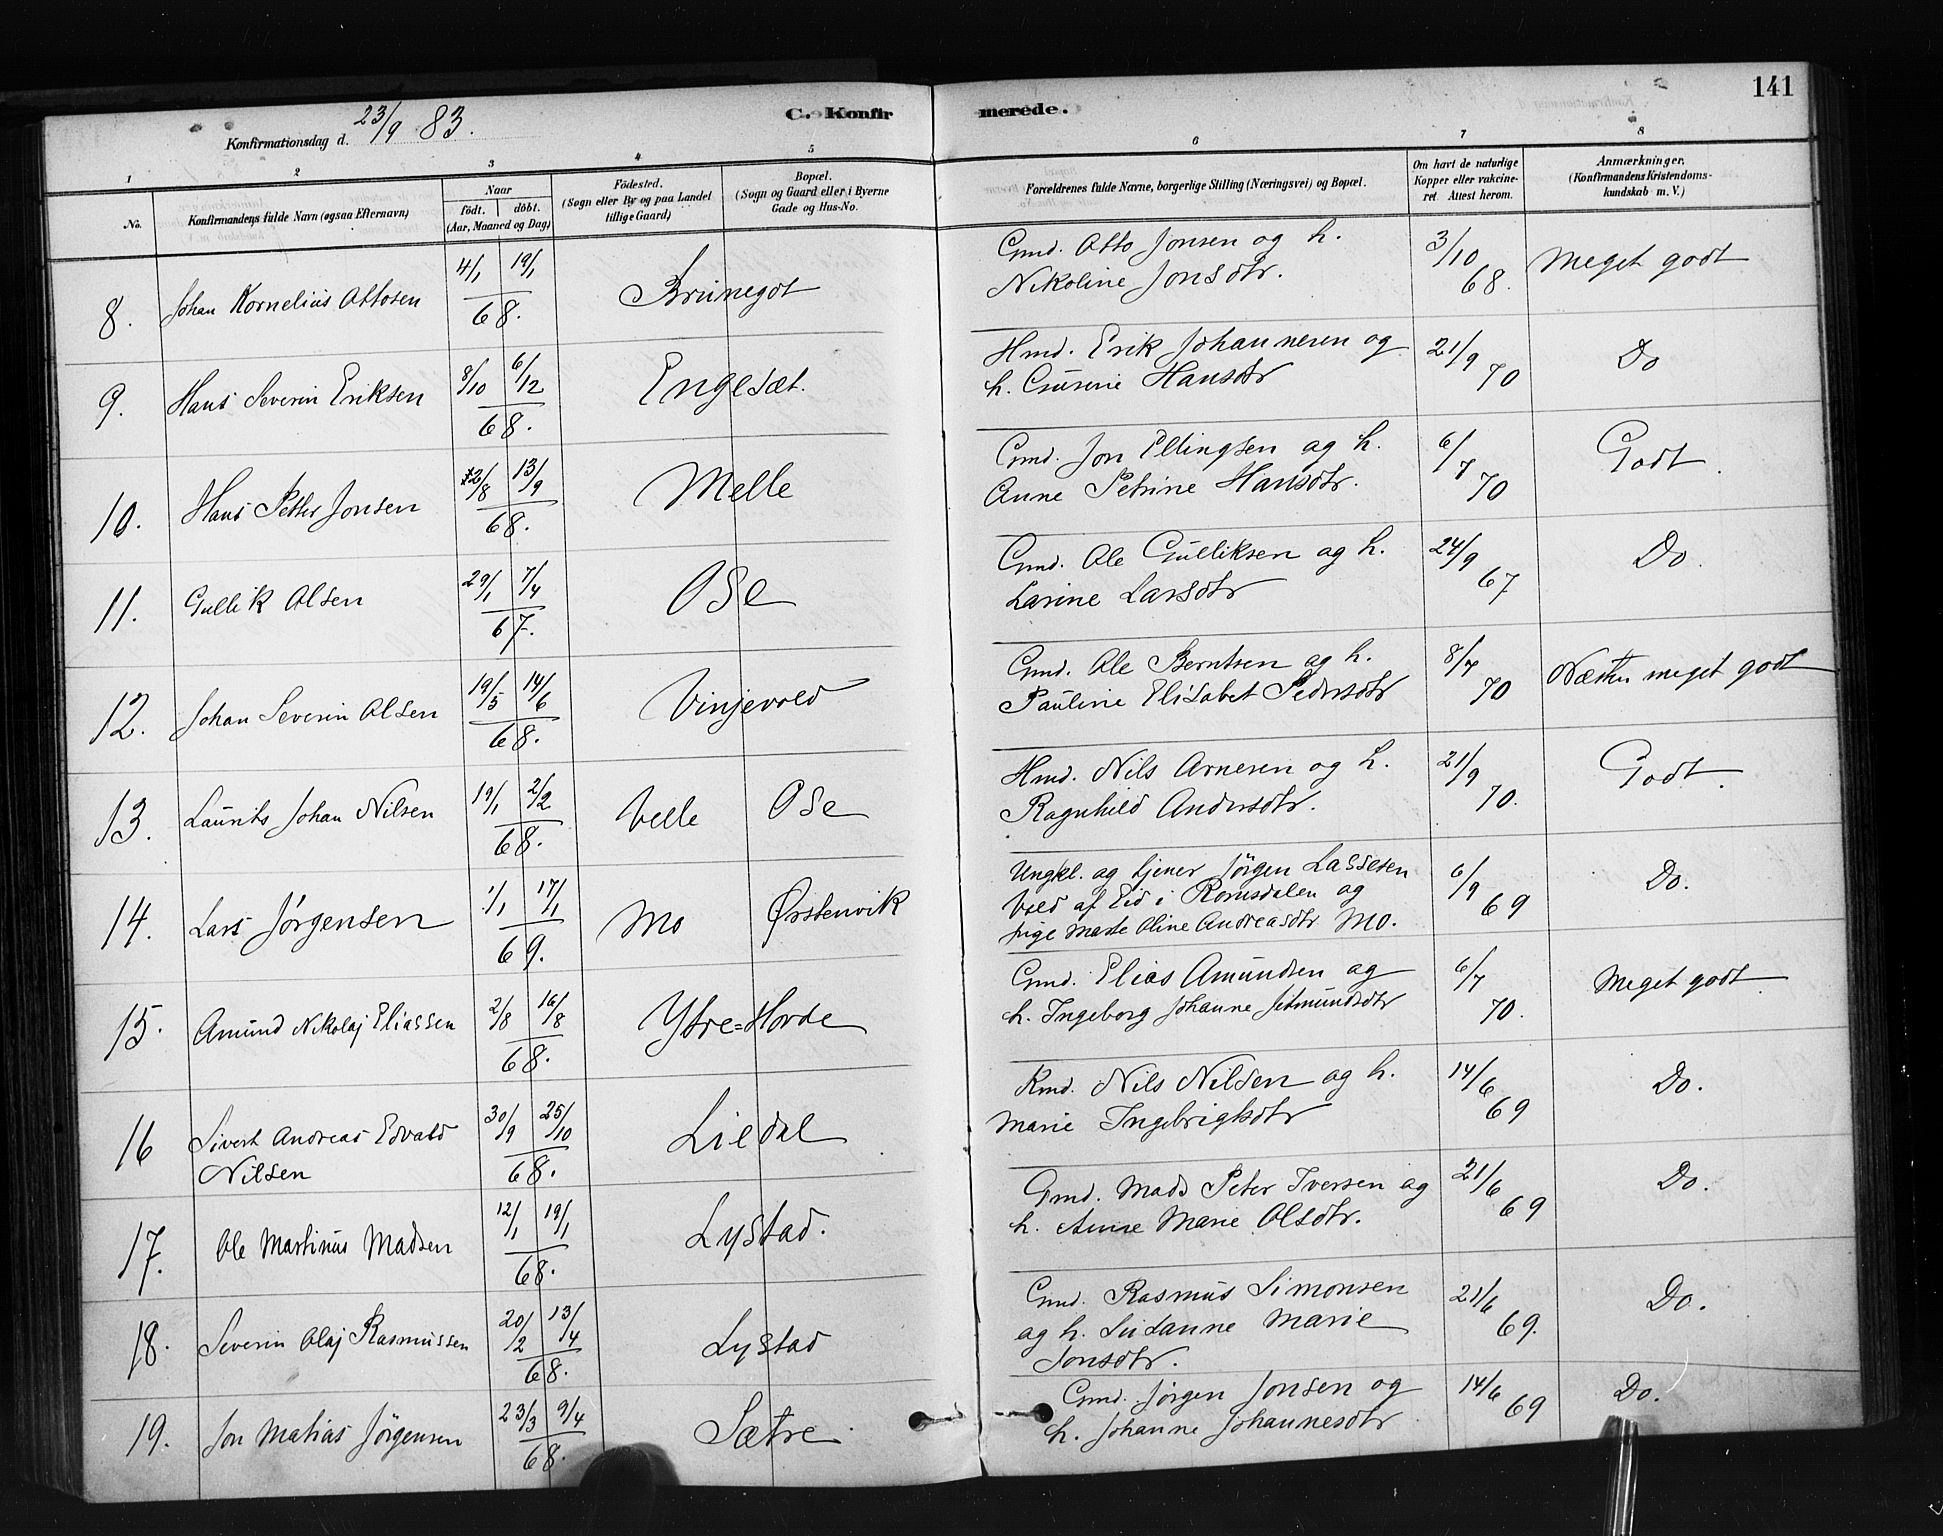 141
C. Konfirmerede.
Konfirmationsdag d. 23/9 83.
1 2 3 4 5 6 7 8
No.
Konfirmandens fulde Navn (ogsaa Efternavn)
Naar
födt. döbt.
(Aar, Maaned og Dag)
Födested.
(Sogn eller By og paa Landet
tillige Gaard)
Bopæl.
(Sogn og Gaard eller i Byerne
Gade og Hus-No.
Forældrenes fulde Navne, borgerlige Stilling (Næringsvei) og Bopæl.
Om havt de naturlige
Kopper eller vakcine-
ret Attest herom.
Anmærkninger.
(Konfirmandens Kristendoms-
kundskab m. V.)
8. Johan Kornelius Ottosen 4/1 19/1 68. Brunegot Gmd. Otto Jonsen og h. 3/10 68. Meget godt
Nikoline Jonsdtr.
9. Hans Severin Eriksen 8/10 6/12 68. Engesæt. Hmd. Erik Johannesen og 21/9 70 Do
h. Gurine Hansdtr
10. Hans Petter Jonsen 22/8 13/9 68. Melle Gmd. Jon Ellingsen og h. 6/7 70 Godt.
Anne Petrine Hansdtr.
11. Gullik Olsen 29/1 7/4 67. Ose Gmd. Ole Gulliksen og h. 24/9 67 Do.
Larine Larsdtr
12. Johan Severin Olsen 19/5 14/6 68. Vinjevold Gmd. Ole Berntsen og h. 8/7 70 Næsten meget godt
Pauline Elisabet Pedersdtr
13. Laurits Johan Nilsen 19/1 2/2 68. Velle Ose Hmd. Nils Arnesen og h. 21/9 70. Godt.
Ragnhild Andersdtr.
14. Lars Jörgensen 1/1 17/1 69. Mo Ørstenvik Ungkl. og tjener Jörgen Lassesen 6/9 69 Do.
Vold af Eid i Romsdalen og
pige Marte Oline Andreasdtr Mo.
15. Amund Nikolaj Eliassen 2/8 16/8 68. Ytre=Horde Gmd. Elias Amundsen og 6/7 70. Meget godt
h. Ingeborg Johanne Jetmundsdtr
16 Sivert Andreas Edvald 30/9 25/10 68. Liedal Kmd. Nils Nilsen og h. 14/6 69 Do.
Nilsen Marie Ingebrigtsdtr
17. Ole Martinus Madsen 12/1 19/1 68. Lystad. Gmd. Mads Peter Iversen og 21/6 69 Do.
h. Anne Marie Olsdtr.
18. Severin Olaj Rasmussen 20/2 13/4 68. Lystad Gmd. Rasmus Simonsen 21/6 69. Do.
og h. Susanne Marie
Jonsdtr.
19. Jon Matias Jörgensen 23/3 9/4 68. Sætre Gmd. Jörgen Jonsen og 14/6 69 Do.
h. Johanne Johannesdtr